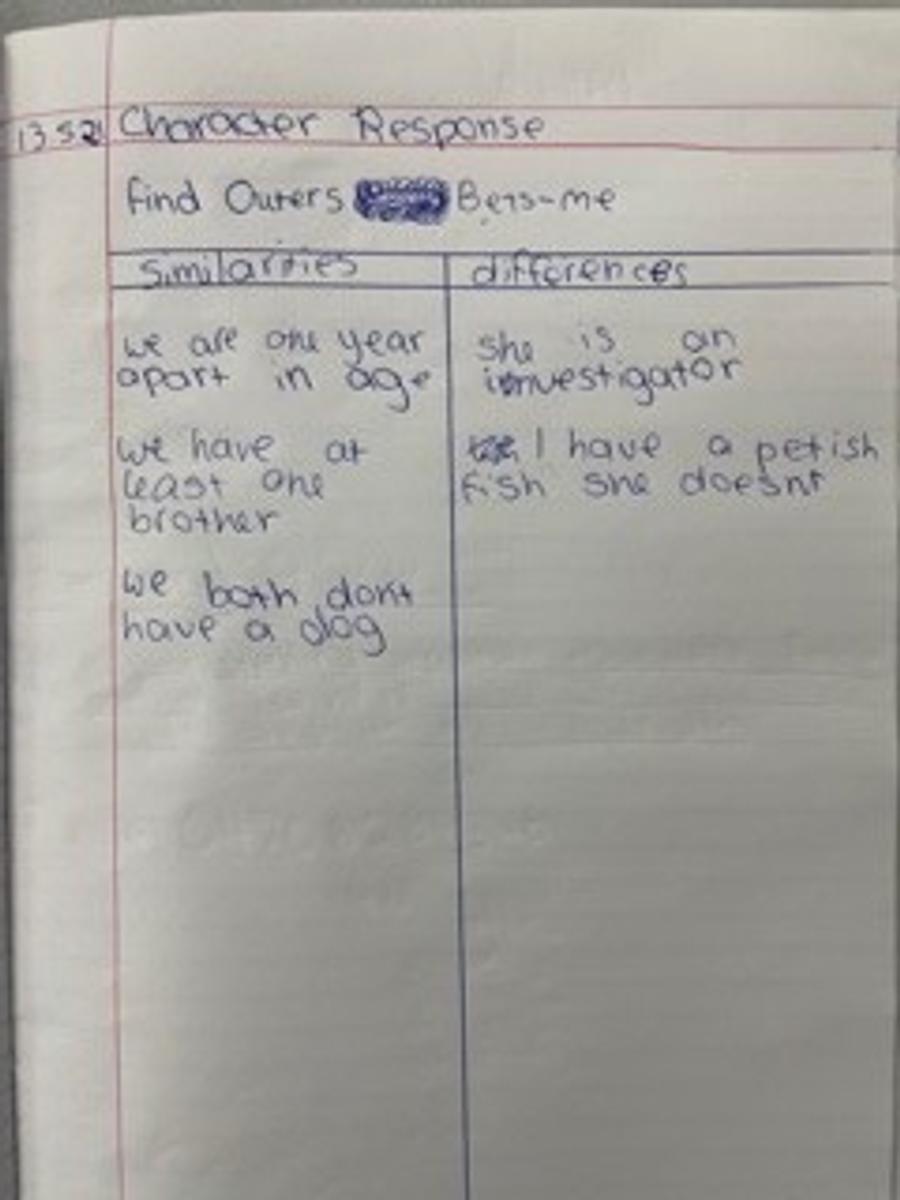 13 5 21 Character Response
find Outers Bets-me
similarities differences
we are one year
apart in age
we have at
least one
brother
we both dont
have a dog
she is an
investigator
I have a petish
fish she doesnt